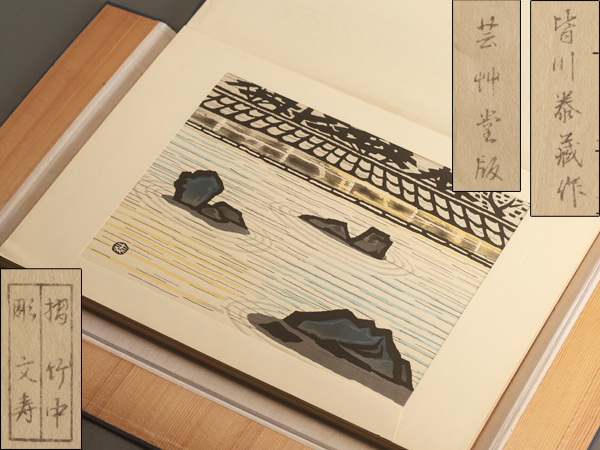 皆川泰蔵作
芸艸堂版
摺 竹中
彫 文寿